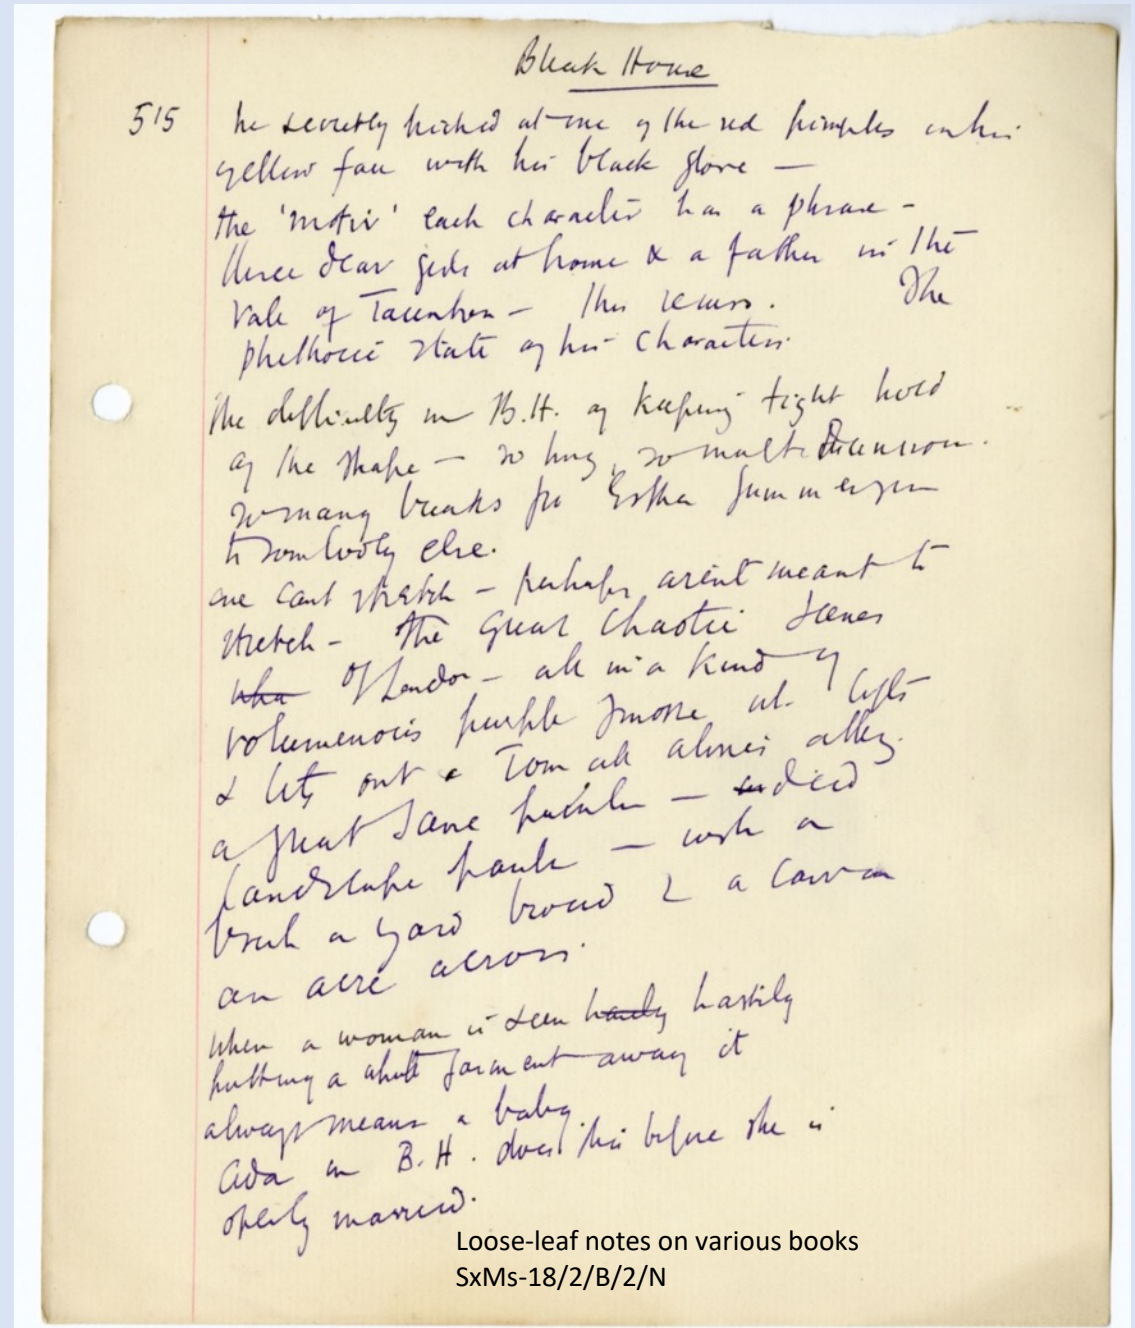 Bleak House
515 he secretly picked at one of the red pimples in his
yellow face with his black glove —
the 'motiv' each character has a phrase -
three dear girls at home & a father in the
Vale of Taunton - this recurs. The
plethoric state of his characters.
The difficulty in B.H. of keeping tight hold
of the shape — so long, so many
so many breaks fr Esther Summerson
to somebody else.
one cant stretch - perhaps arent meant to
stretch - The great chaotic scenes
of London - all in a kind of
volumenous purple smoke lifts
& lets out Tom all alones alley.
a great scene painter — indeed
landscape painter — with a
brush a yard broad & a canvas
an acre across.
when a woman is seen hastily
putting a white garment away it
always means a baby
Ada in B.H. does this before she is
openly married.
Loose-leaf notes on various books
SxMs-18/2/B/2/N